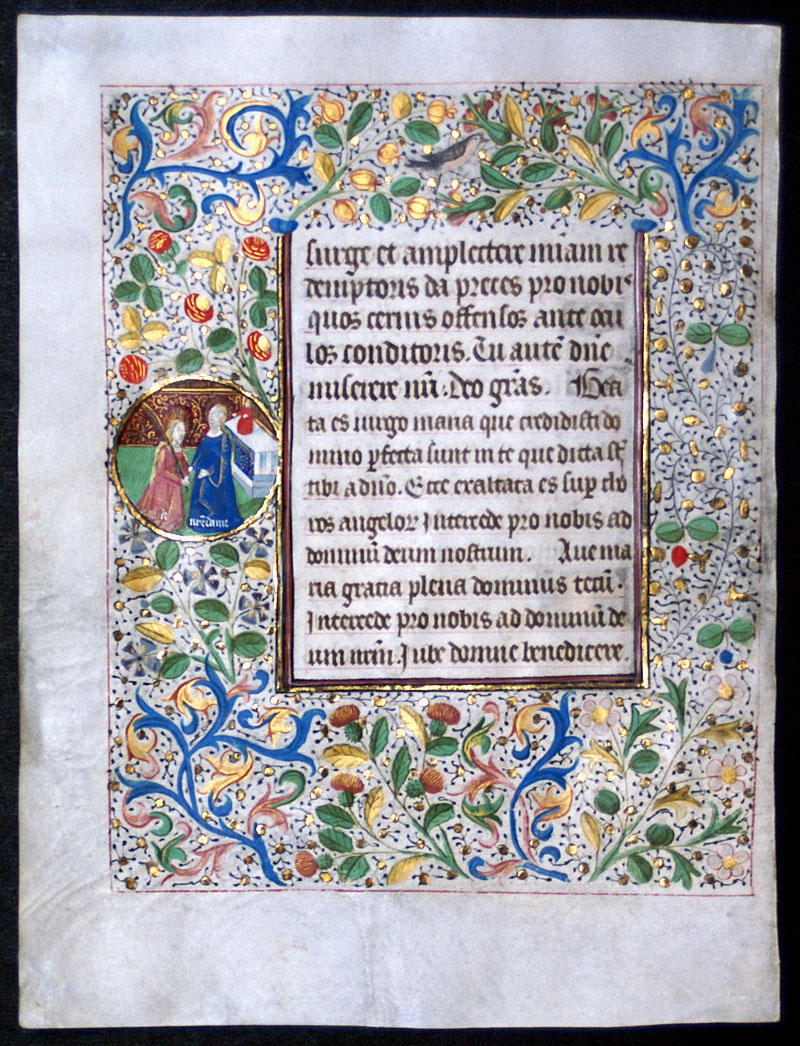 surge et amplectere miam re
demptoris da preces pro nobis
quos cernis offensos ante ocu
los conditoris. Tu aute dne
miserere nri. Deo gras. Bea
ta es uirgo maria que credidisti do
mino pfecta sunt in te que dicta st
tibi a dno. Ecce exaltata es sup cho
ros angelor Intercede pro nobis ad
dominu deum nostrum. Aue ma
ria gracia plena dominus tecu.
Intercede pro nobis ad dominu de
um nrm. Iube domne benedicere.